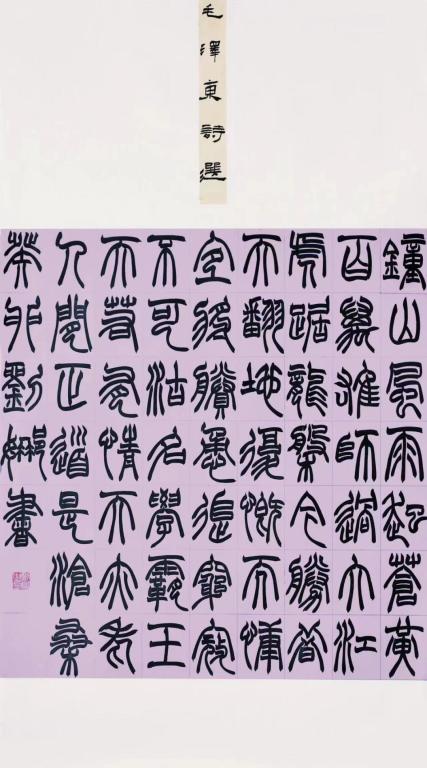 毛澤東詩選
鐘山風雨起蒼黃
百萬雄師過大江
虎踞龍槃今勝昔
天翻地覆慨而慷
宜將賸恿追窮寇
不可沽名學霸王
天若有情天亦老
人間正道是滄桑
癸卯劉娜書